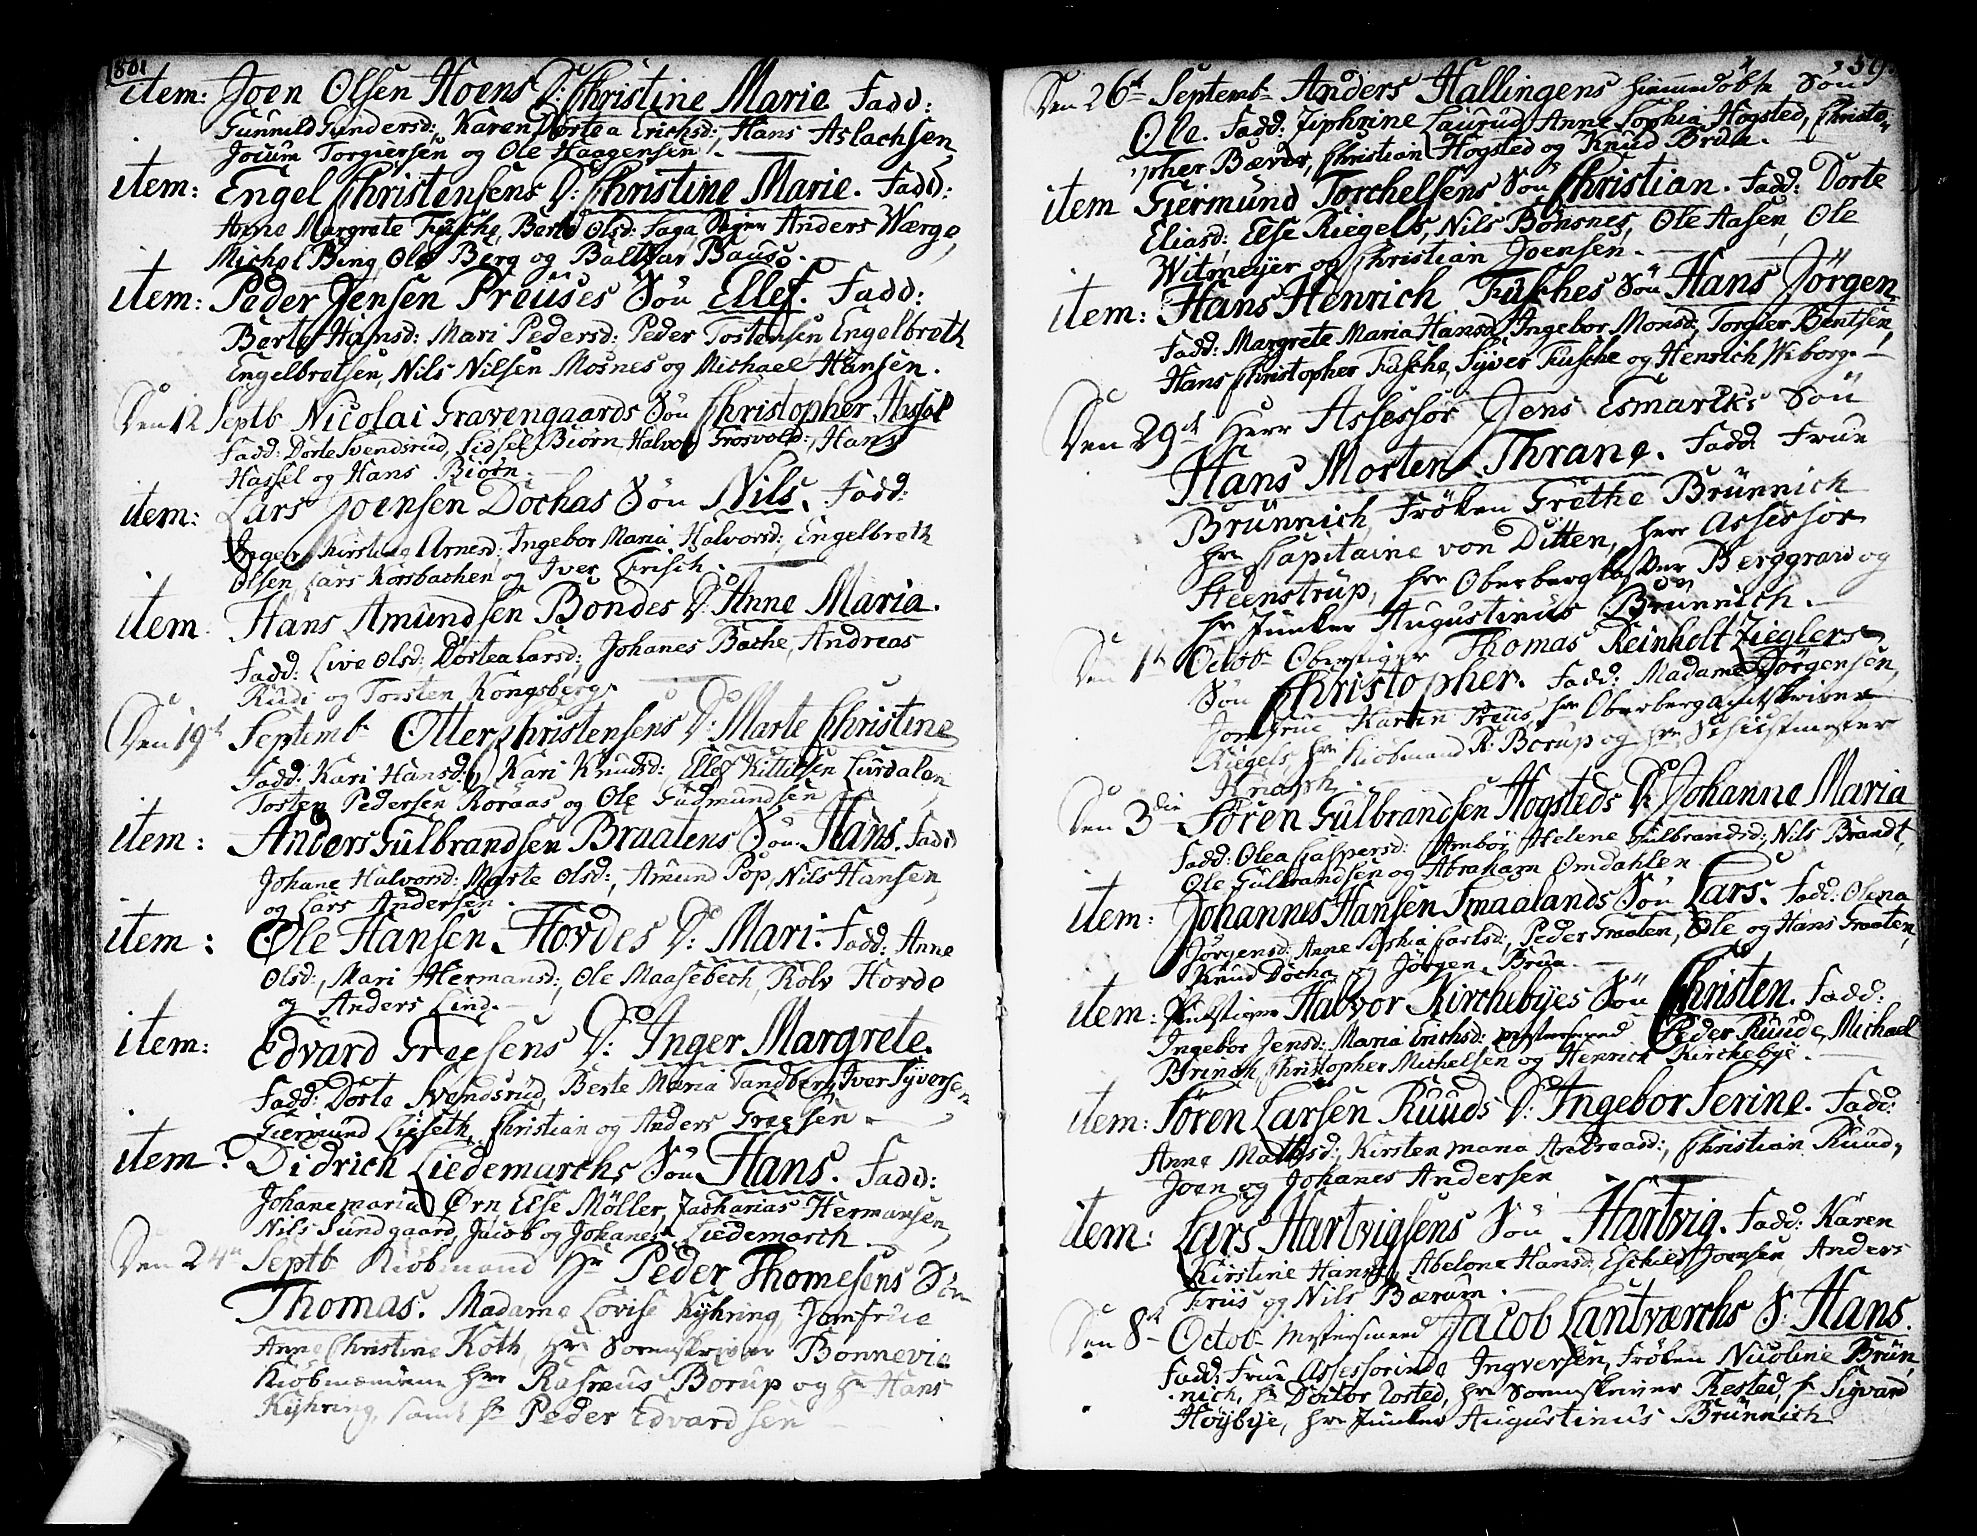 1801
item: Joen Olsen Hoens D: Christine Marie Fadd:
Gunnild Gundersd:, Karen Dortea Erichsd:, Hans Aslachsen,
Jocum Torgiersen og Ole Haagensen.
item: Engel Christensens D: Christine Marie. Fadd:
Anne Margrete Fusche, Berte Olsd: Anders Wærge,
Michel Bing, Ole Berg og Baltzar Baus.
item: Peder Jensen Preuses Søn Ellef. Fadd:
Berte Hansd: Mari Pedersd: Peder Tostensen Engelbreth
Engelbretsen, Nils Nilsen Mosnes og Michael Hansen.
Den 12 Septb Nicolai Gravengaards Søn Christopher Hassel
Fadd: Dorte Svendsrud, Sidsel Biørn, Halvor Grosvold:, Hans
Hassel og Hans Biørn.
item: Lars Joensen Dochas Søn Nils. Fadd:
Inger Kirstine Arnesd:, Ingebor Maria Halvorsd:, Engelbreth
Olsen, Lars Korsbachen og Iver Frisch.
item. Hans Amundsen Bondes D: Anne Maria.
Fadd: Live Olsd:, Dortea Larsd:, Johanes Bache, Andreas
Rudi og Torsten Kongsberg.
Den 19d Septemb Otter Christensens D: Marte Christine
Fadd: Kari Hansd:, Kari Knudsd: Ellef Kittilsen Lurdalen,
Tosten Pedersen Roraas og Ole Gudmundsen
item: Anders Gulbrandsen Braatens Søn Hans. Fadd
Johane Halvorsd: Marte Olsd:, Amund Pop, Nils Hansen,
og Lars Andersen.
item: Ole Hansen Hovdes D: Mari. Fadd: Anne
Olsd:, Mari Hermansd:, Ole Maasebech, Rolv Hovde
og Anders Lind.
item: Edvard Greesens D: Inger Margrete.
Fadd: Dorte Svendsrud, Berte Maria Sandberg, Iver Syversen,
Giermund Lieseth, Christian og Anders Greesen
item: Didrich Liedemarchs Søn Hans. Fadd:
Johanemaria Ørn, Else Møller, Zacharias Hermansen,
Nils Sundgaard, Jacob og Johanes Liedemarch
Den 24 Septb Kiöbmand Hr Peder Thomesens Søn
Thomas. Madame Lovise Kyhring, Jomfrue
Anne Christine Koth, Hr Sorenskriver Bonnevie
Kiöbmændene Hrr Rasmus Borup og Hr Hans
Kyhring, samt Hr Peder Edvardsen
Den 26d Septemb Anders Hallingens hiemmedøbte Søn
Ole. Fadd: Ziphrine Laurud, Anne Sophia Hogsted, Christo-
pher Bærver, Christian Hogsted og Knud Brua.
item Giermund Torchelsens Søn Christian. Fadd: Dorte
Eliasd: Else Riegels, Nils Bonsnes, Ole Aasen, Ole
Witmeyer og Christian Joensen.
item: Hans Henrich Fusches Søn Hans Jörgen
Fadd: Margrete Maria Hansd: Ingebor Monsd:, Torgier Bentsen,
Hans Christopher Fusche, Syver Fusche og Henrich Wiborg.
Den 29d Herr Assessor Jens Esmarcks Søn
Hans Morten Thrane. Fadd: Frue
Brünnich, Fröken Grethe Brünnich
Hr Capitaine von Ditten, Herr Assessor
Steenstrup, Hr Oberberg Berggrav og
Hr Junker Augustinus Brünnich.
Den 1 Octob Oberstiger Thomas Reinholt Zieglers
Søn Christopher. Fadd: Madame Jörgensen,
Jomfrue Karen Preus, Hr Oberbergamtskriver
Riegels, Hr Kiöbmand R: Borup og Hr
Den 3die Sören Gulbrandsen Hogsteds D: Johanne Maria
Fadd: Olea Caspersd: Ambor Helene Gulbrandsd:, Nils Brandt,
Ole Gulbrandsen og Abraham Omdahlen
item: Johannes Hansen Smaalands Søn Lars. Fadd: Olena
Jörgensd: Anne Sophia Carlsd:, Peder Graaten, Ole og Hans Graaten,
Knud Docha og Jörgen Brua.
item: Halvor Kirchebyes Søn Christen. Fadd:
Ingebor Jensd: Maria Erichsd: Peder Ruude, Michael
Brinch, Christopher Michelsen og Henrich Kirchebye.
item: Sören Larsen Ruuds D: Ingebor Serine. Fadd:
Anne Mathisd:, Kirsten maria Andreasd:, Christian Ruud,
Joen og Johanes Andersen
item: Lars Hartvigsens Søn Hartvig. Fadd: Karen
Kirstine Hansd, Abelone Hansd, Eschild Joensen, Anders
Friis og Nils Bærum.
Den 8d Octob Jacob Lantværchs S: Hans.
Fadd: Frue Assessorinde Ingversen, Fröken Nicoline Brün,
nich, Hr Doctor Tosted, Hr Sorenskriver Rested, Hr Sigvard
Høybye, Hr Junker Augustinus Brünnich